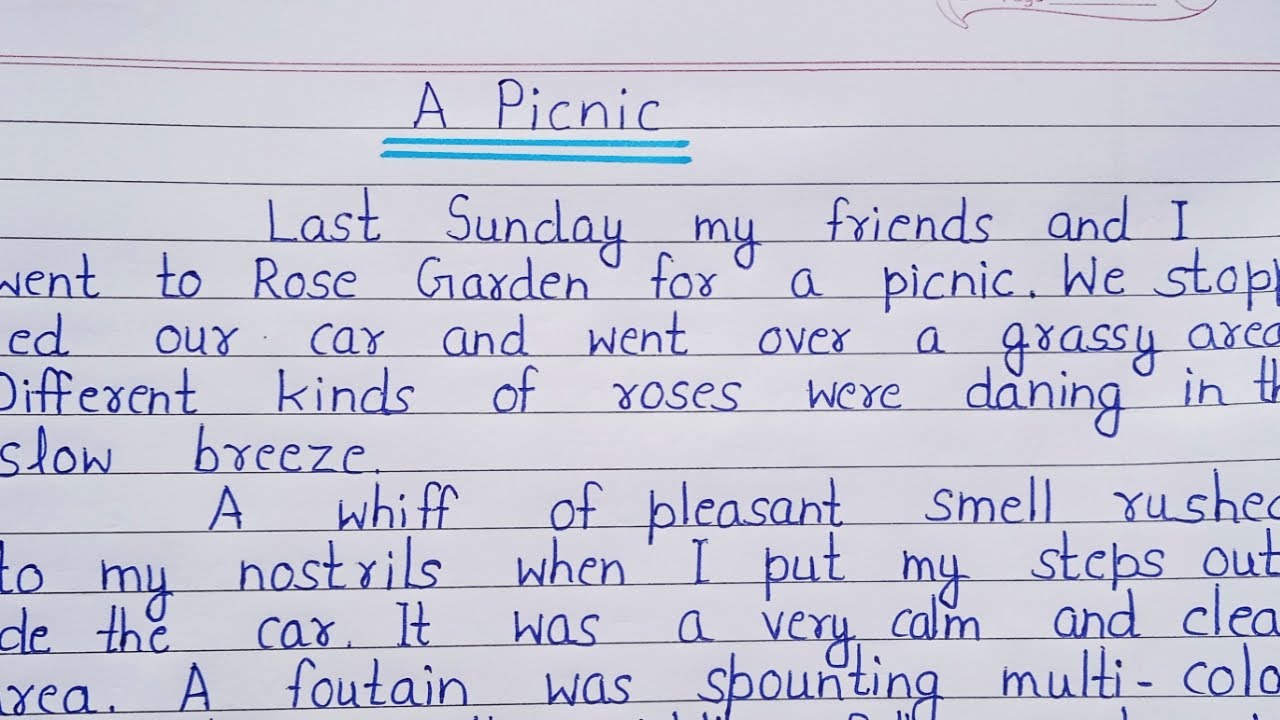 A Picnic
Last Sunday my friends and I
went to Rose Garden for a picnic. We stopp
ed our car and went over a grassy area
Different kinds of roses were daning in th
slow breeze.
A whiff of pleasant smell rushed
to my nostrils when I put my steps out
de the car. It was a very calm and clea
area. A foutain was spounting multi-colo